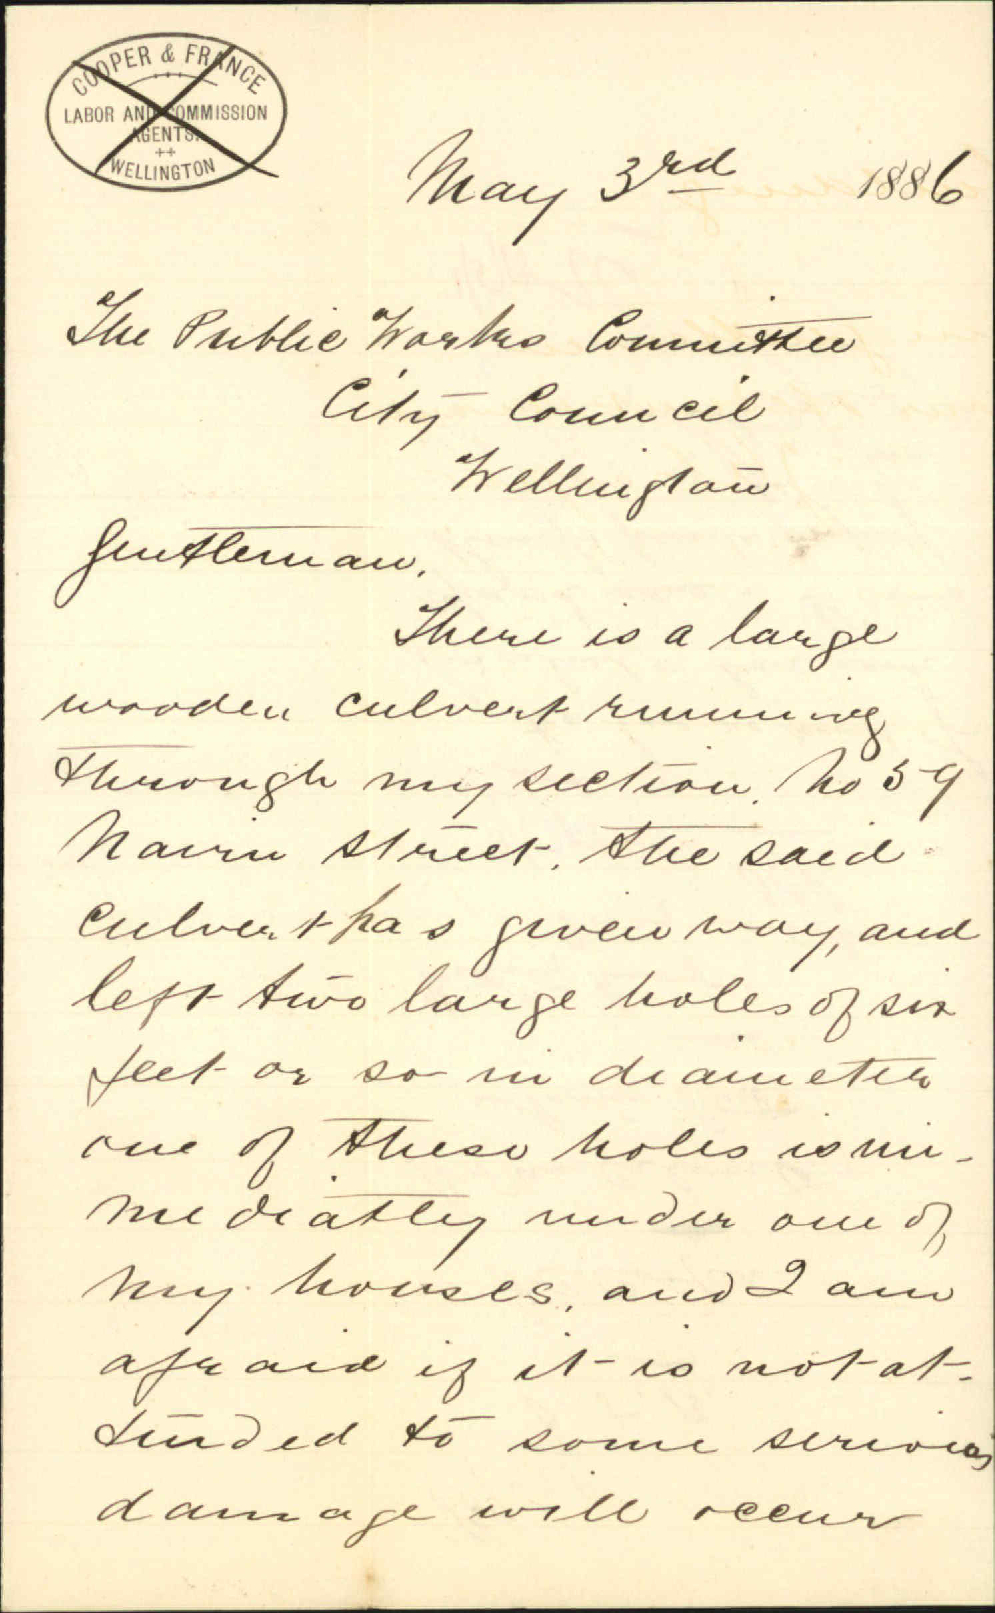 COOPER & FRANCE
LABOR AND COMMISSION
AGENTS.
WELLINGTON
May 3rd 1886
The Public Works Committee
City Council
Wellington
Gentleman.
There is a large
wooden culvert running
through my section. No 59
Nairn street. the said
culvert has given way, and
left two large holes of six
feet or so in diameter
one of these holes is im-
mediatley under one of
my houses, and I am
afraid if it is not at-
tended to some serious
damage will occur